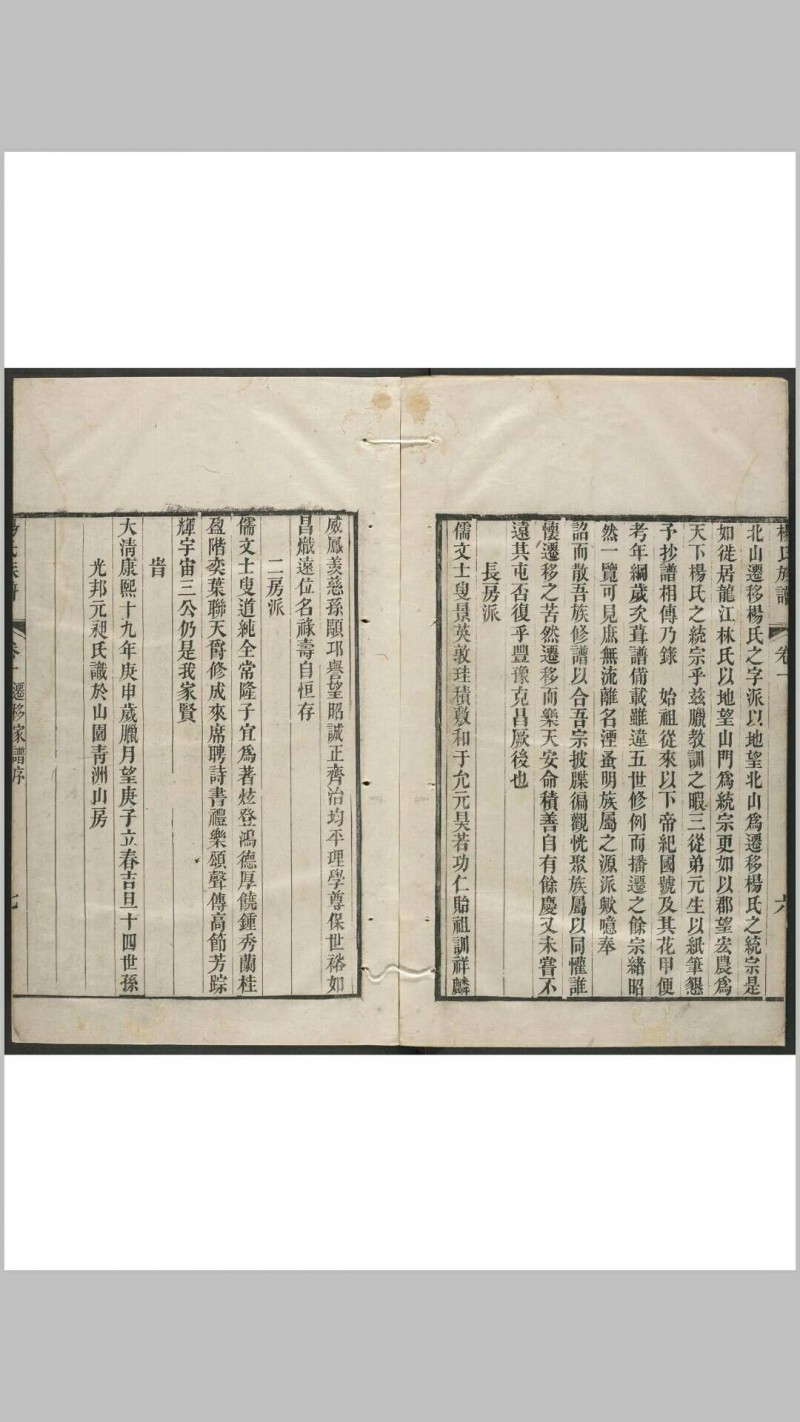 楊氏族譜 卷一 六
北山遷移楊氏之字派以地望北山爲遷移楊氏之統宗是
如徙居龍江林氏以地望山門爲統宗更如以郡望宏農爲
天下楊氏之統宗乎茲臘教訓之暇三從弟元生以紙筆懇
予抄譜相傳乃錄 始祖從來以下帝紀國號及其花甲便
考年綱歲次葺譜備載雖違五世修例而播遷之餘宗緒昭
然一覽可見庶無流離名湮蚤明族屬之源派歟噫奉
詔而散吾族修譜以合吾宗披牒徧觀恍聚族屬以同懽誰
懷遷移之苦然遷移而樂天安命積善自有餘慶又未嘗不
遠其屯否復乎豐豫克昌厥後也
長房派
儒文士叟景英敦珪積敷和于允元昊若功仁貽祖訓祥麟
威鳳羨慈孫願邛譽望昭誠正齊治均平理學尊保世裕如
昌熾遠位名祿壽自恒存
二房派
儒文士叟道純全常隆子宜爲著炫登鴻德厚饒鍾秀蘭桂
盈階奕葉聯天爵修成來席聘詩書禮樂頌聲傳高節芳踪
輝宇宙三公仍是我家賢
旹
大清康熙十九年庚申歲臘月望庚子立春吉旦十四世孫
光邦元昶氏識於山園靑洲山房
卷一 遷移家譜序 七